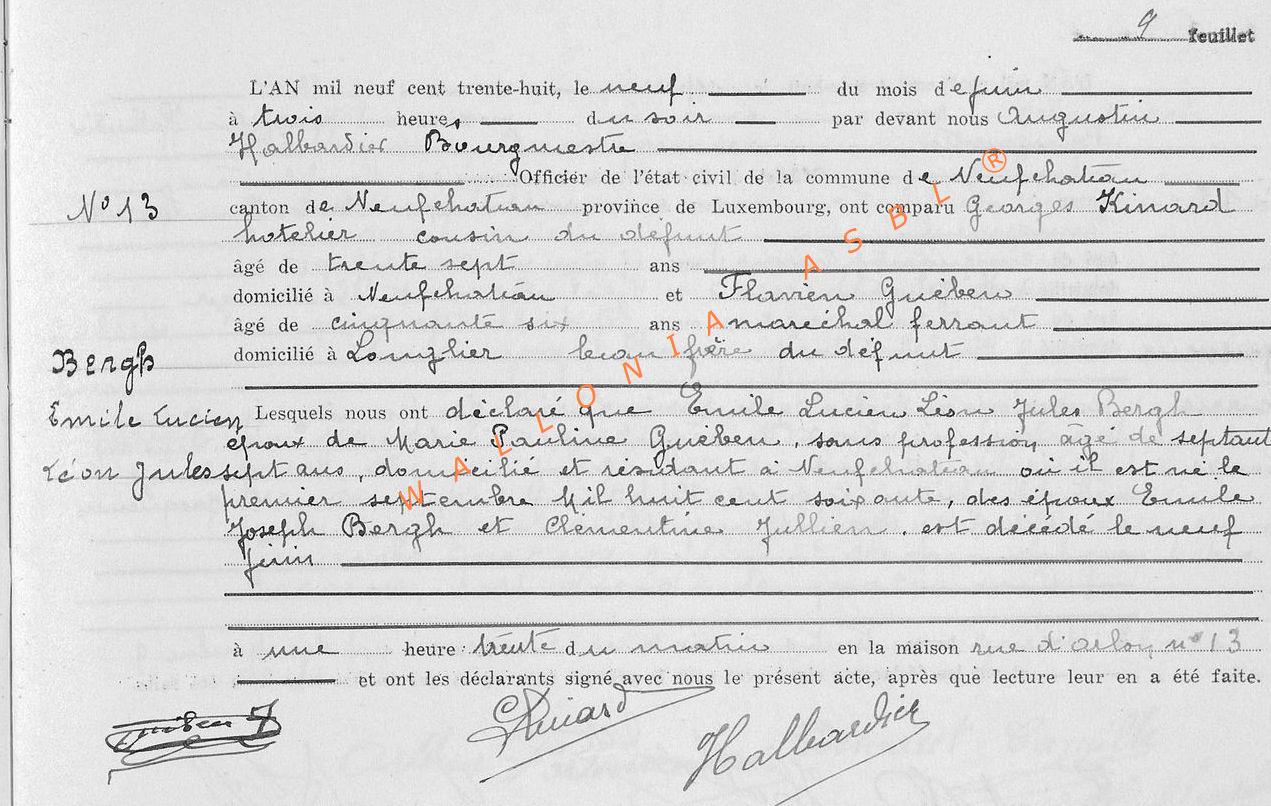 9 feuillet
L'AN mil neuf cent trente-huit, le neuf du mois de juin
à trois heures du soir par devant nous Augustin
Halbardier Bourgmestre
Officier de l'état civil de la commune de Neufchateau
N° 13
canton de Neufchateau province de Luxembourg, ont comparu Georges Kinard
hotelier cousin du défunt
âgé de trente sept ans
domicilié à Neufchateau et Flavien Guében
âgé de cinquante six ans maréchal ferrant
domicilié à Longlier beau frère du défunt
Bergh
Emile Lucien
Léon Jules
Lesquels nous ont déclaré que Emile Lucien Léon Jules Bergh
époux de Marie Pauline Guében, sans profession, âgé de septante
sept ans, domicilié et résidant à Neufchateau où il est né le
premier septembre Mil huit cent soixante, des époux Emile
Joseph Bergh et Clementine Jullien, est décédé le neuf
juin
à une heure trente du matin en la maison rue d'Arlon n° 13
et ont les déclarants signé avec nous le présent acte, après que lecture leur en a été faite.
Guében F
GKinard
Halbardier
WALLONIA ASBL ®